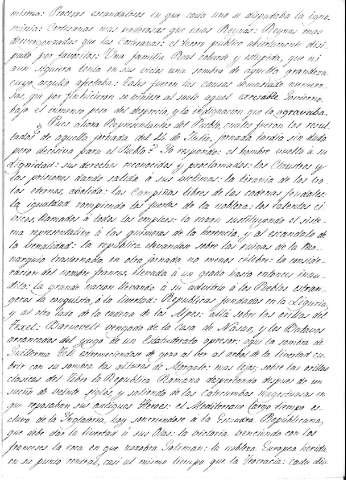 mismo: Procesos escandalosos en que cada uno se disputaba la igno-
minia: Cortesanas mas numerosas que unas Reynas: Reynas mas
desvergonzadas que las Cortesanas: el tesoro publico absolutamente disi-
pado por favoritos: Una familia Real cobarde y estupida, que ni
aun siquiera tenia en sus vicios una sombra de aquella grandeza
cuyo orgullo afectaba: Tales fueron las causas demasiado numero-
sas, que por fin hicieron se viniese al suelo aquel execrable Govierno,
bajo el inmenso peso del desprecio, y la indignacion que lo agravaba.
Pues ahora Representantes del Pueblo, cuales fueron los resul-
tados de aquella jornada del 14 de Julio, jornada tardia sin duda
pero decisiva para el Pueblo? Yo respondo: el hombre vuelto á su
dignidad: sus derechos reconocidos y proclamados: los Claustros y
las prisiones dando salida á sus victimas: la tirania de los
eternos, abolida: las Campiñas libres de las cadenas feudales:
la igualdad rompiendo las puertas de la nobleza: los talentos ci-
vicos, llamados á todos los empleos: la razon sustituyendo el siste-
ma representativo á las quimeras de la herencia, y al escandalo de
la venalidad: la republica elevandose sobre las ruinas de la Mo-
narquia trastornada en otra jornada no menos celebre: la conside-
racion del nombre frances, llevada á un grado hasta entonces inau-
dito: la grande nacion llevando á su advitrio á los Pueblos estran-
geros la conquista, ó la libertad: Republicas fundadas en la Liguria,
y al otro lado de la cadena de los Alpes: allá sobre las orillas del
Texel: Barnevelt vengado de la Casa de Nasau, y los Batavos
arrancados del yugo de un Estatuderato opresor: aqui la sombra de
Guillermo Tell estremeciendose de gozo al ver al arbol de la libertad cu-
brir con su sombra las alturas de Morgate: mas lejos, sobre las orillas
clasicas del Tiber la Republica Romana despertando despues de un
sueño de veinte siglos, y saliendo de las Catacumbas magestuosas en
que reposaban sus antiguos Heroes: el Mediterraneo largo tiempo es-
clavo de la Inglaterra, hoy sonriendose á la Escuadra Republicana,
que debe dar la libertad á sus Olas: la victoria, venciendo con los
franceses la roca en que naufraba Soliman: la nobleza Europea herida
en su punto central, casi al mismo tiempo que la Teocracia: cada dia